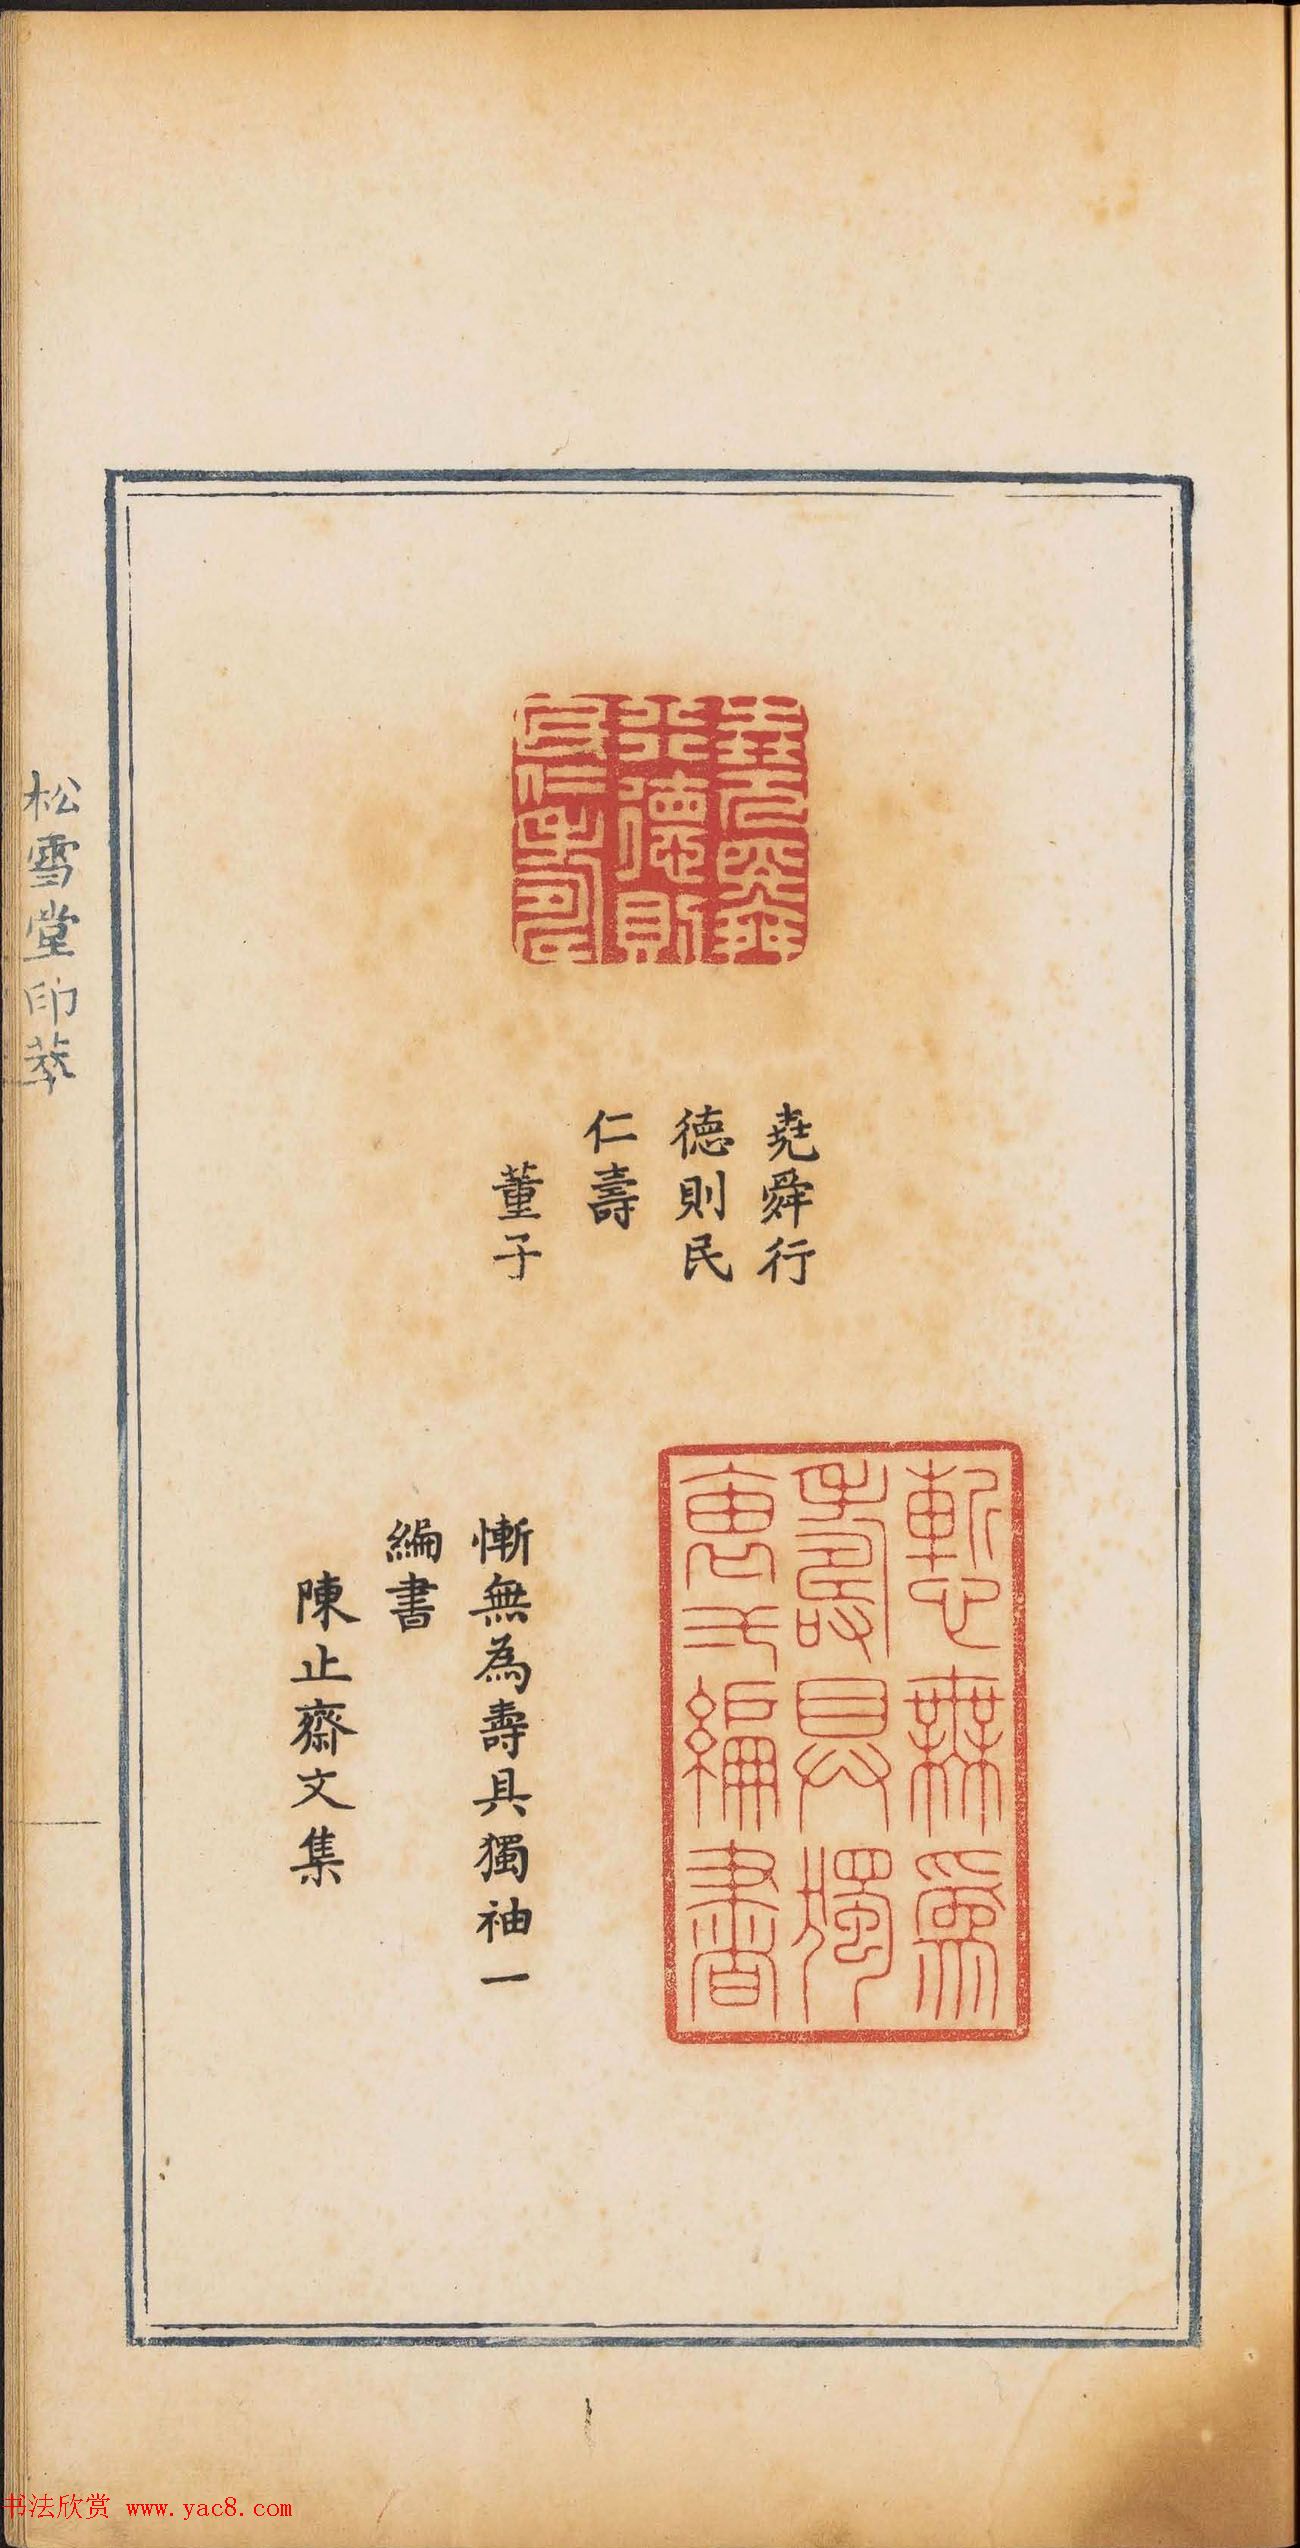 堯舜行
德則民
仁壽
董子
慙無爲
壽具獨
褏一編書
慚無為壽具獨袖一
編書
陳止齋文集
松雪堂印萃
书法欣赏 www.yac8.com